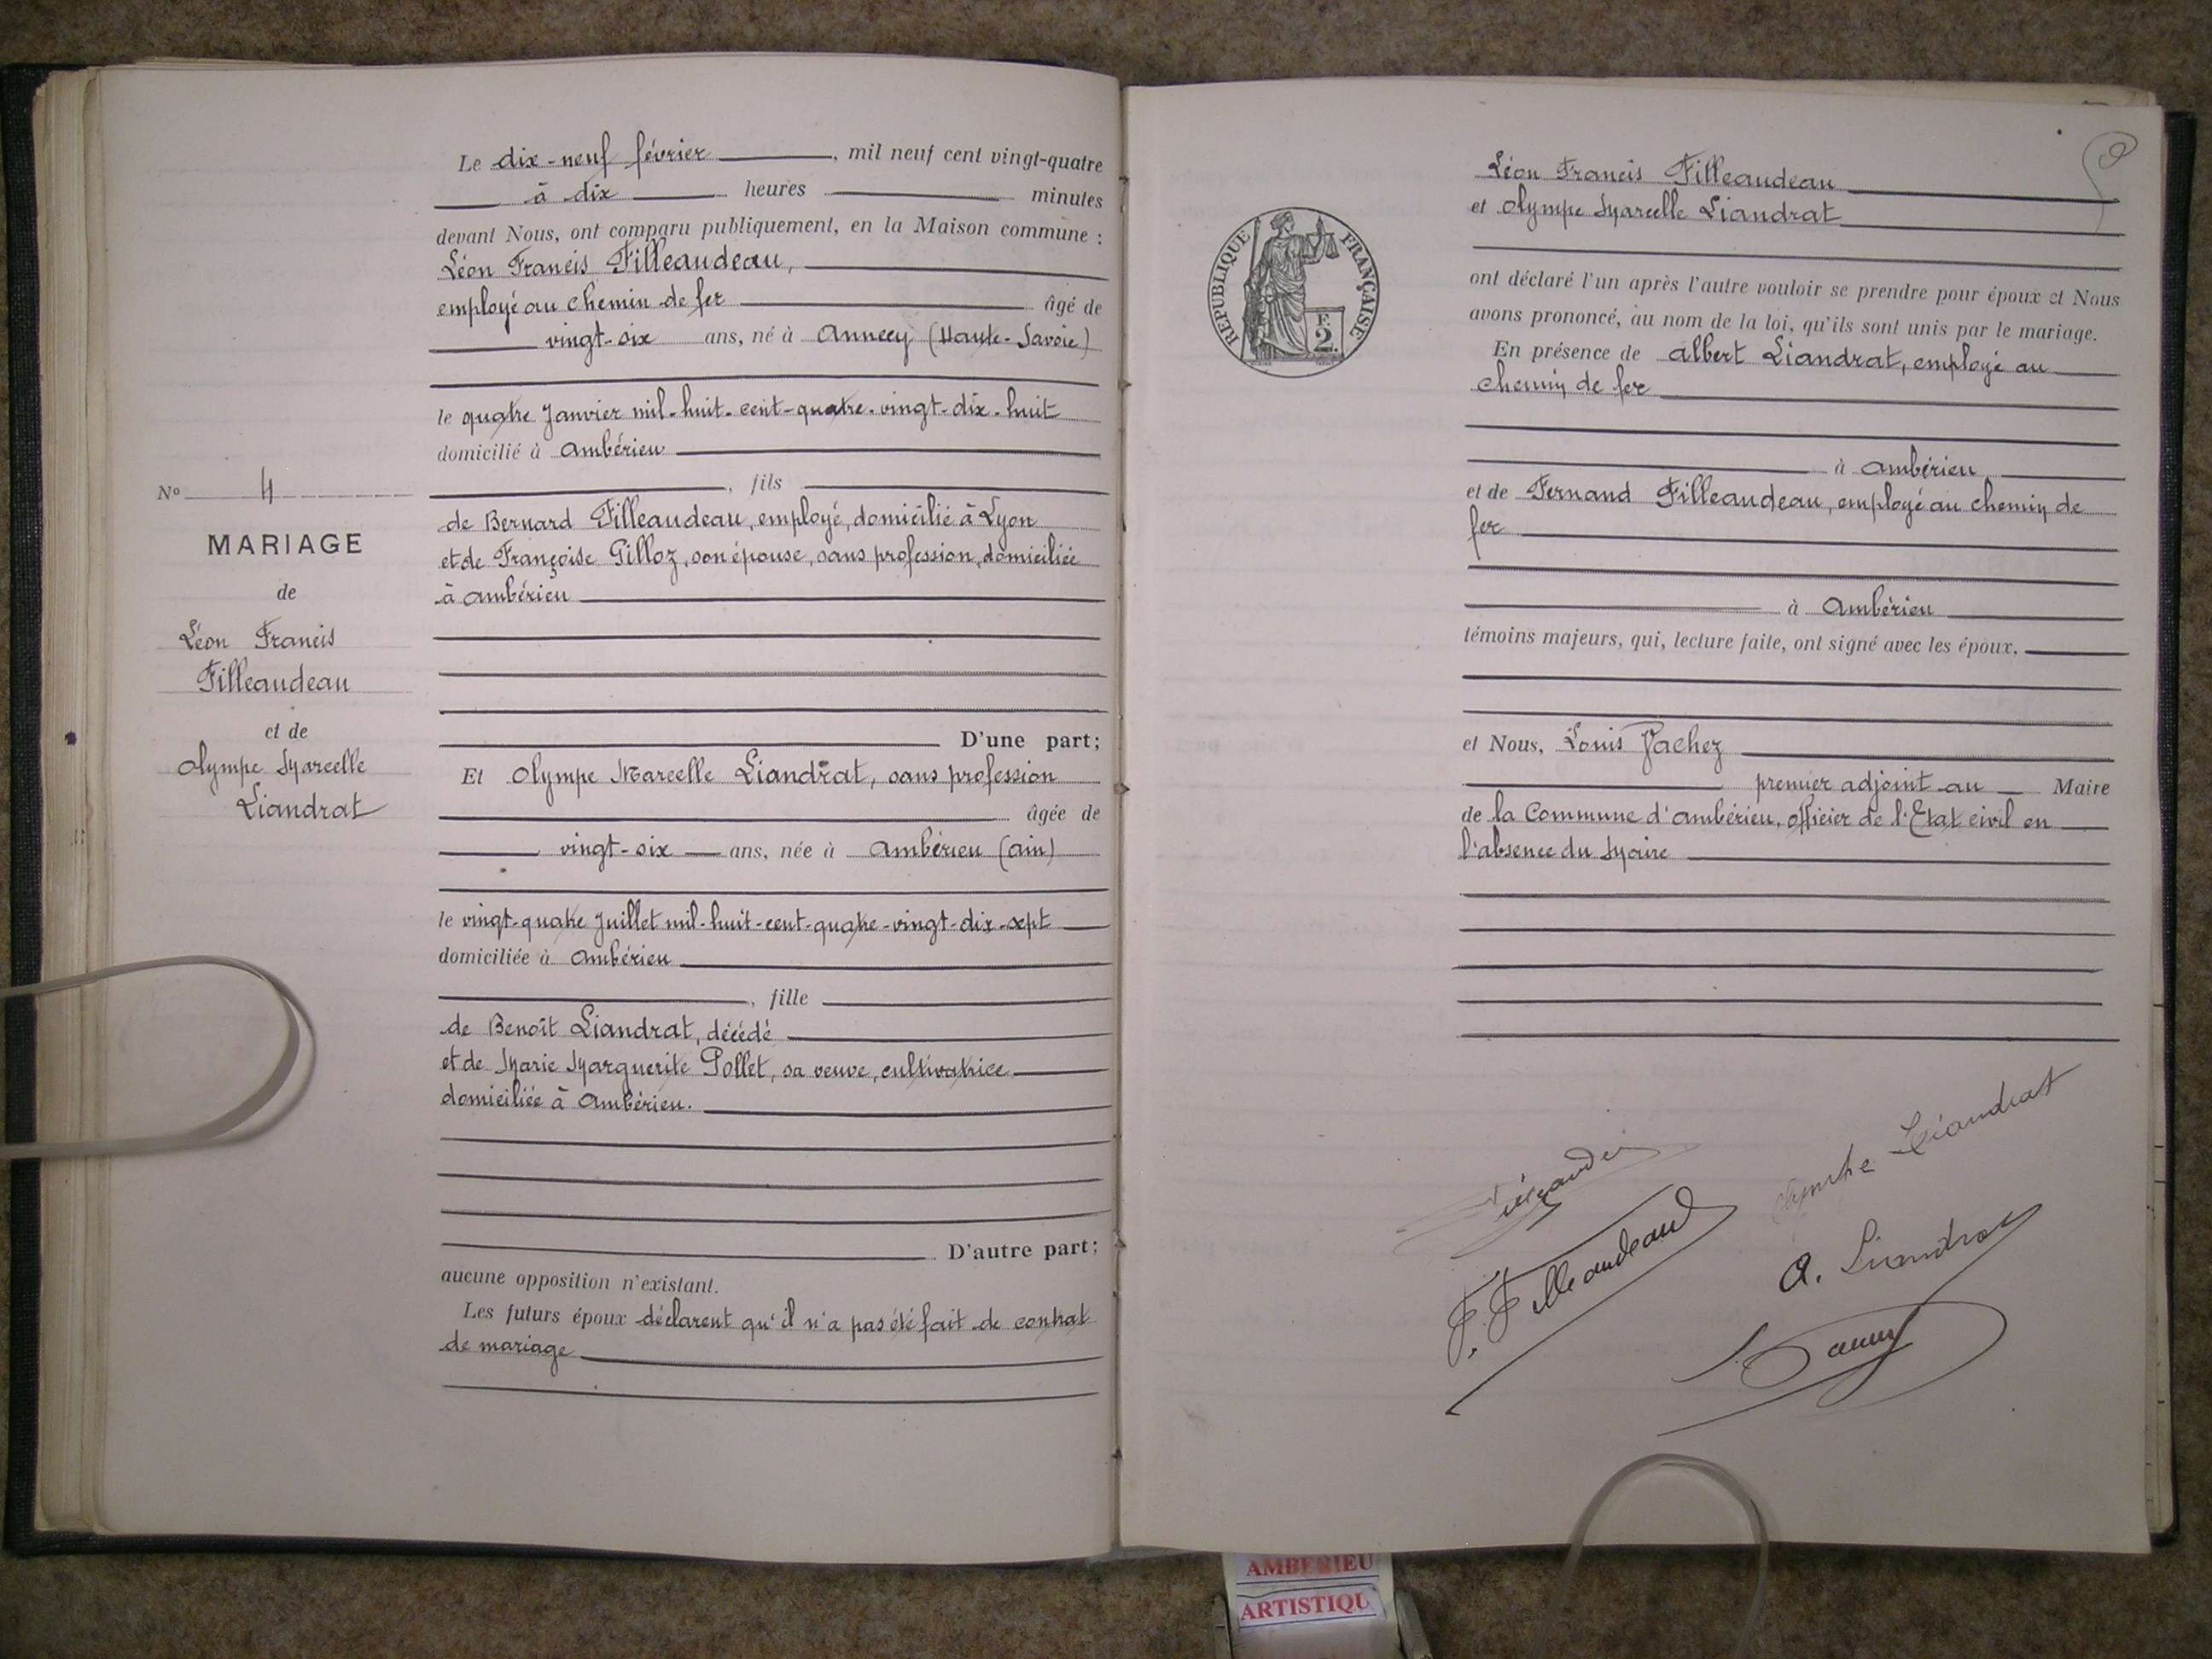 Le dix-neuf février, mil neuf cent vingt-quatre
à dix heures minutes
devant Nous, ont comparu publiquement, en la Maison commune :
Léon Francis Filleaudeau,
employé au chemin de fer âgé de
vingt-six ans, né à Annecy (Haute-Savoie)
le quatre Janvier mil-huit-cent-quatre-vingt-dix-huit
domicilié à Ambérieu
, fils
de Bernard Filleaudeau, employé, domicilié à Lyon
et de Françoise Gilloz, son épouse, sans profession, domiciliée
à Ambérieu
D'une part;
Et Olympe Marcelle Liandrat, sans profession
âgée de
vingt-six ans, née à Ambérieu (Ain)
le vingt-quatre Juillet mil-huit-cent-quatre-vingt-dix-sept
domiciliée à Ambérieu
, fille
de Benoît Liandrat, décédé
et de Marie Marguerite Pollet, sa veuve, cultivatrice
domiciliée à Ambérieu.
D'autre part;
aucune opposition n'existant.
Les futurs époux déclarent qu'il n'a pas été fait de contrat
de mariage
No 4
MARIAGE
de
Léon Francis
Filleaudeau
et de
Olympe Marcelle
Liandrat
RÉPUBLIQUE FRANÇAISE
F.
2.
Léon Francis Filleaudeau
et Olympe Marcelle Liandrat
ont déclaré l'un après l'autre vouloir se prendre pour époux et Nous
avons prononcé, au nom de la loi, qu'ils sont unis par le mariage.
En présence de Albert Liandrat, employé au
chemin de fer
à Ambérieu
et de Fernand Filleaudeau, employé au chemin de
fer
à Ambérieu
témoins majeurs, qui, lecture faite, ont signé avec les époux.
et Nous, Louis
premier adjoint au Maire
de la Commune d'Ambérieu, officier de l'Etat civil en
l'absence du Maire
Liandrat
F. Filleaudeau
A. Liandrat
AMBERIEU
ARTISTIQU